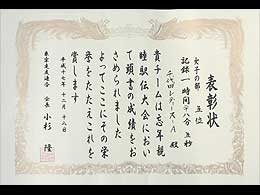 表彰状
女子の部 五位
記録 一時間二十八分 五秒
千代田レディース－A 殿
貴チームは忘年親
睦駅伝大会におい
て頭書の成績をお
さめられました
よってここにその栄
誉をたたえこれを
賞します
平成十七年 十二月 十八日
東京走友連合 会長 小杉 隆